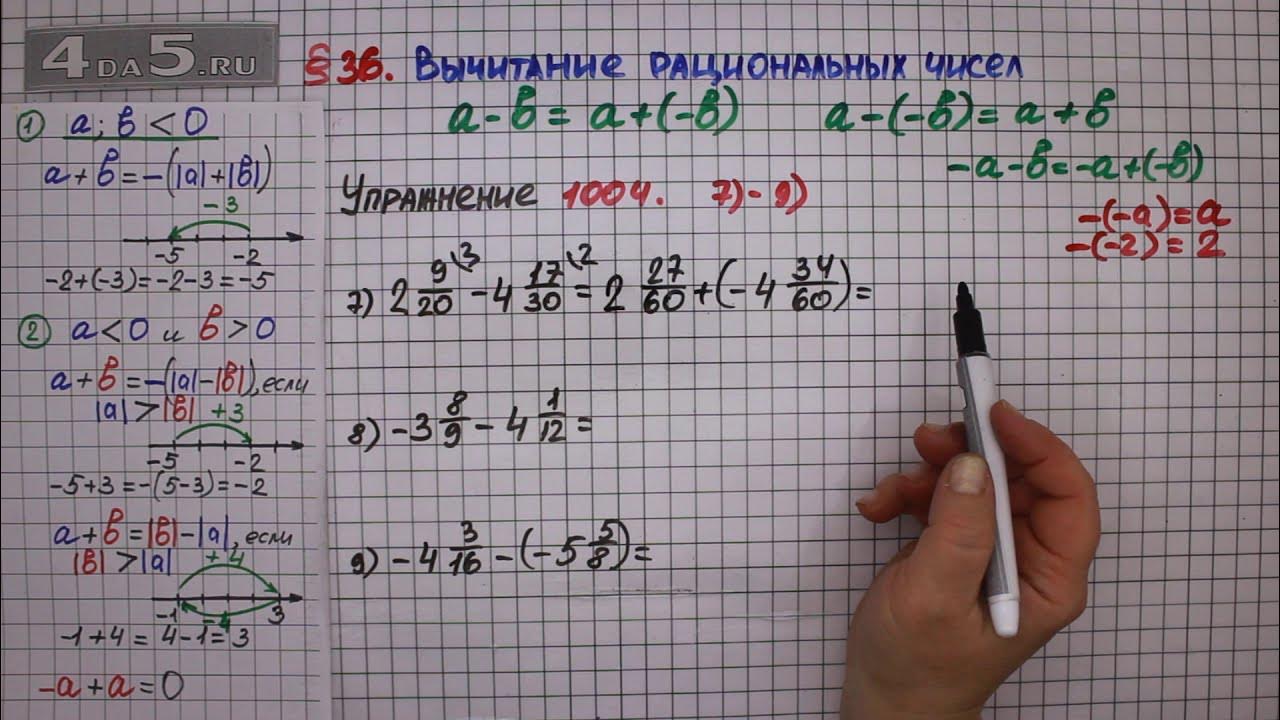 4DA5.RU
§ 36. Вычитание рациональных чисел
a - b = a + (-b)    a - (-b) = a + b
-a - b = -a + (-b)
-(-a) = a
-(-2) = 2
Упражнение 1004. 7) - 9)
7) 2 9/20 \3 - 4 17/30 \2 = 2 27/60 + (-4 34/60) =
8) -3 8/9 - 4 1/12 =
9) -4 3/16 - (-5 5/8) =
1) a; b < 0
a + b = -(|a| + |b|)
-3
-5 -2
-2 + (-3) = -2 - 3 = -5
2) a < 0 и b > 0
a + b = -(|a| - |b|), если
|a| > |b|
+3
-5 -2
-5 + 3 = -(5 - 3) = -2
a + b = |b| - |a|, если
|b| > |a|
+4
-1 3
-1 + 4 = 4 - 1 = 3
-a + a = 0